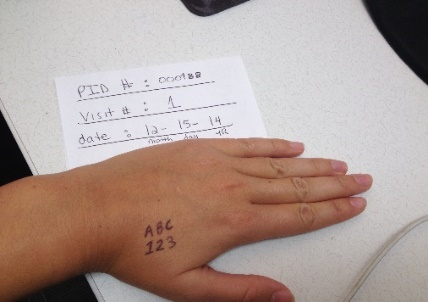 PID # : 000988
Visit # : 1
date : 12 - 15 - 14
month day yr
ABC
123